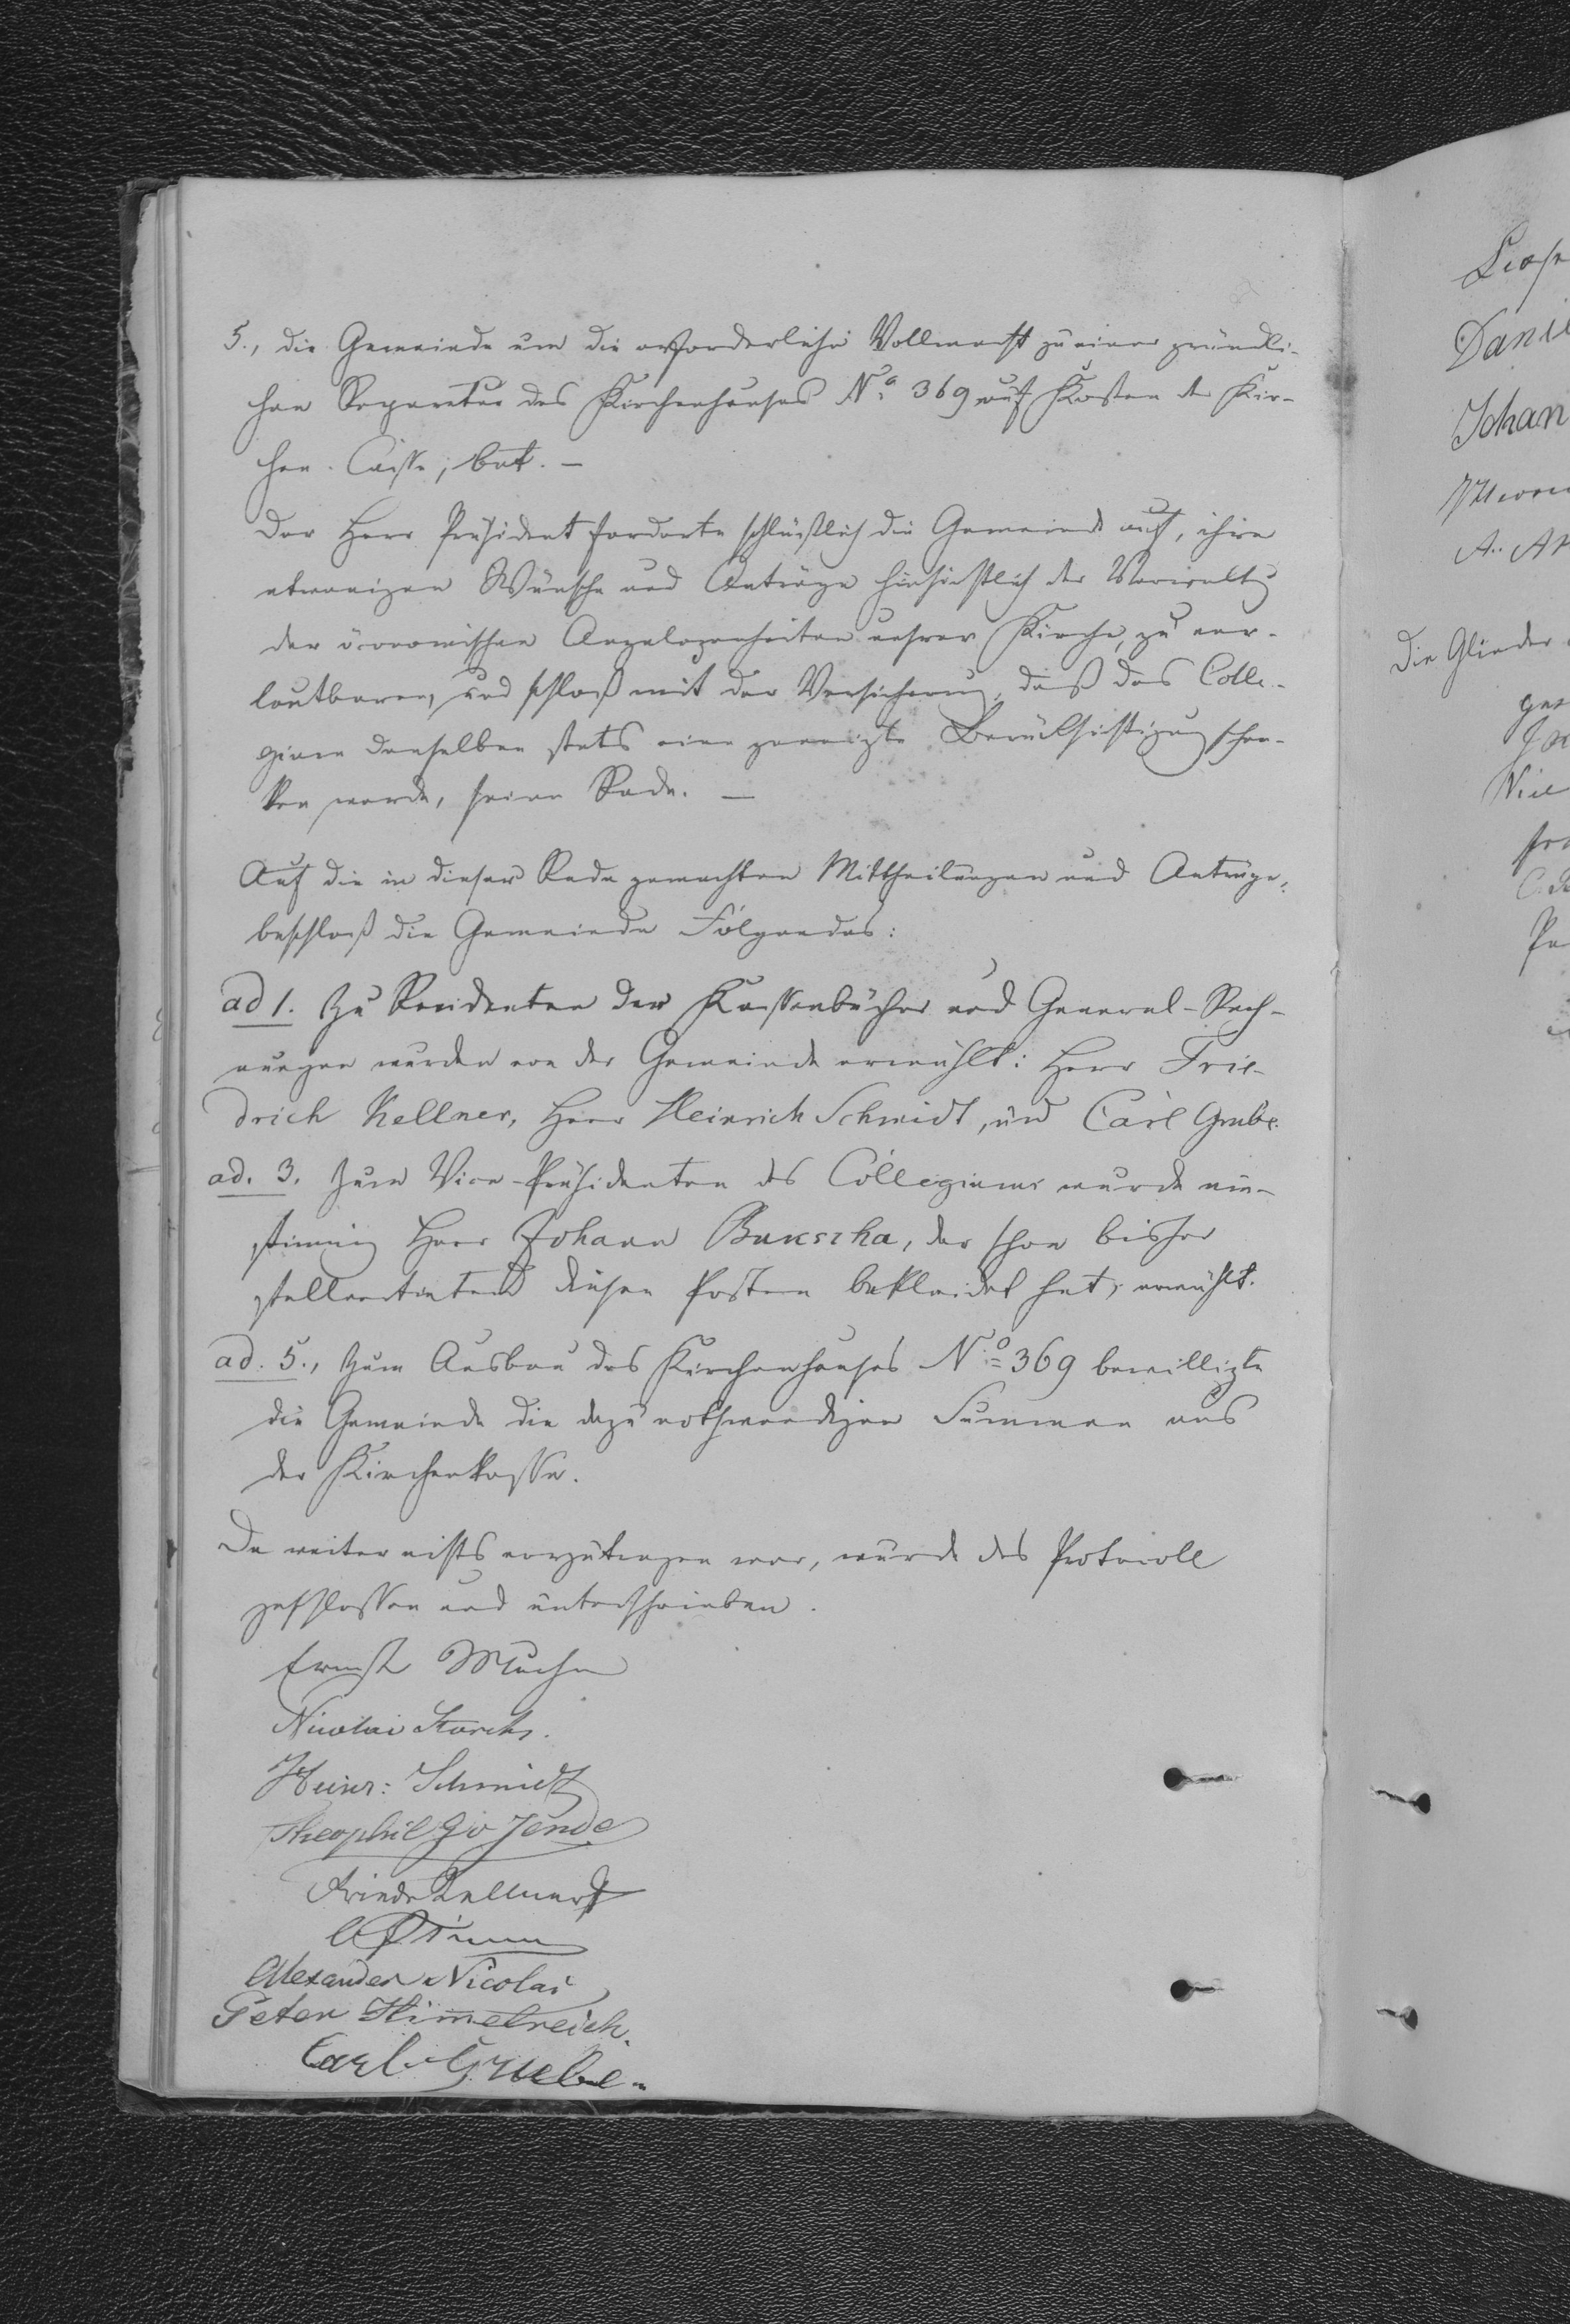 5., die Gemeinde um die erforderliche Vollmacht zu einer gründli-
chen Reparatur des Kirchenhauses No 369 auf Kosten der Kir-
chen-Casse, bat. –
Der Herr Präsident forderte schlüßlich die Gemeinde auf, ihre
etwanigen Wünsche und Anträge hinsichtlich der Verwaltg
der öconomischen Angelegenheiten unsrer Kirche, zu ver-
lautbaren, und schloß mit der Versicherung, daß das Colle-
gium denselben stets eine geneigte Berücksichtigung schen-
ken werde, seine Rede. –
Auf die in dieser Rede gemachten Mittheilungen und Anträge,
beschloß die Gemeinde Folgendes:
ad 1. Zu Revidenten der Kassenbücher und General-Rech-
nungen wurden von der Gemeinde erwählt: Herr Frie-
drich Kellner, Herr Heinrich Schmidt, und Carl Grube.
ad. 3. Zum Vice-Präsidenten des Collegiums wurde ein-
stimmig Herr Johann, der schon bisher
stellvertretend diesen Posten bekleidet hat, erwählt.
ad. 5., Zum Ausbau des Kirchenhauses No 369 bewilligte
die Gemeinde die dazu nothwendigen Summen aus
der Kirchenkasse.
Da weiter nichts vorzutragen war, wurde das Protocoll
geschlossen und unterschrieben.
Ernst
Nicolai Storch.
Heinr: Schmidt
Theophil Jende
Friedr Kellner
Alexander Nicolai
Peter Himelreich.
Carl Gruebe.
Danie
Johan
Die Glieder